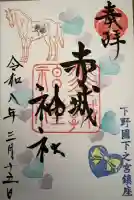 奉拝
下野國下之宮鎮座
赤城神社
令和八年三月十五日